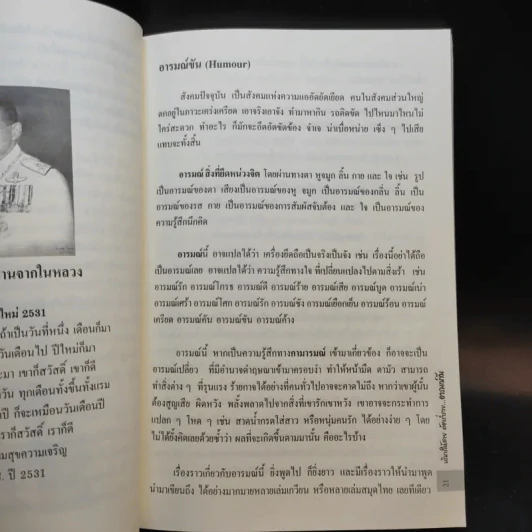 านจากในหลวง
ใหม่ 2531
ถ้าเป็นวันที่หนึ่ง เดือนก็มา
วันเดือนไป ปีใหม่ก็มา
ะมา เขาก็สวัสดิ์ เขาก็ดี
วัน ทุกเดือนทั้งขึ้นทั้งแรม
ปี ก็จะเหมือนวันเดือนปี
ราก็สวัสดิ์ เราก็ดี
มสุขความเจริญ
ส. ปี 2531
อารมณ์ขัน (Humour)
สังคมปัจจุบัน เป็นสังคมแห่งความแออัดยัดเยียด คนในสังคมส่วนใหญ่
ตกอยู่ในภาวะเคร่งเครียด เอาจริงเอาจัง ทำมาหากิน รถติดขัด ไปไหนมาไหนไม่
ใคร่สะดวก ทำอะไร ก็มักจะอึดอัดขัดข้อง จำเจ น่าเบื่อหน่าย เซ็ง ๆ ไปเสีย
แทบจะทั้งสิ้น
อารมณ์ สิ่งที่ยึดหน่วงจิต โดยผ่านทางตา หู จมูก ลิ้น กาย และ ใจ เช่น รูป
เป็นอารมณ์ของตา เสียงเป็นอารมณ์ของหู จมูก เป็นอารมณ์ของกลิ่น ลิ้น เป็น
อารมณ์ของรส กาย เป็นอารมณ์ของการสัมผัสจับต้อง และ ใจ เป็นอารมณ์ของ
ความรู้สึกนึกคิด
อารมณ์นี้ อาจแปลได้ว่า เครื่องยึดถือเป็นจริงเป็นจัง เช่น เรื่องนี้อย่าได้ถือ
เป็นอารมณ์เลย อาจแปลได้ว่า ความรู้สึกทางใจ ที่เปลี่ยนแปลงไปตามสิ่งเร้า เช่น
อารมณ์รัก อารมณ์โกรธ อารมณ์ดี อารมณ์ร้าย อารมณ์เสีย อารมณ์บูด อารมณ์เน่า
อารมณ์เศร้า อารมณ์โศก อารมณ์รัก อารมณ์ชัง อารมณ์เยือกเย็น อารมณ์ร้อน อารมณ์
เครียด อารมณ์คัน อารมณ์ขัน อารมณ์ค้าง
อารมณ์นี้ หากเป็นความรู้สึกทางกามารมณ์ เข้ามาเกี่ยวข้อง ก็อาจจะเป็น
อารมณ์เปลี่ยว ที่มีอำนาจดำฤษณาเข้ามาครอบงำ ทำให้หน้ามืด ตามัว สามารถ
ทำสิ่งต่าง ๆ ที่รุนแรง ร้ายกาจได้อย่างที่คนทั่วไปอาจจะคาดไม่ถึง หากว่าเขาผู้นั้น
ต้องสูญเสีย ผิดหวัง พลั้งพลาดไปจากสิ่งที่เขารักเขาหวัง เขาอาจจะกระทำการ
แปลก ๆ โหด ๆ เช่น สาดน้ำกรดใส่สาว หรือหนุ่มคนรัก ได้อย่างง่าย ๆ โดย
ไม่ได้ยั้งคิดเลยด้วยซ้ำว่า ผลที่จะเกิดขึ้นตามมานั้น คืออะไรบ้าง
เรื่องราวเกี่ยวกับอารมณ์นี้ ยิ่งพูดไป ก็ยิ่งยาว และมีเรื่องราวให้นำมาพูด
นำมาเขียนถึง ได้อย่างมากมายหลายเล่มเกวียน หรือหลายเล่มสมุดไทย เลยทีเดียว
31